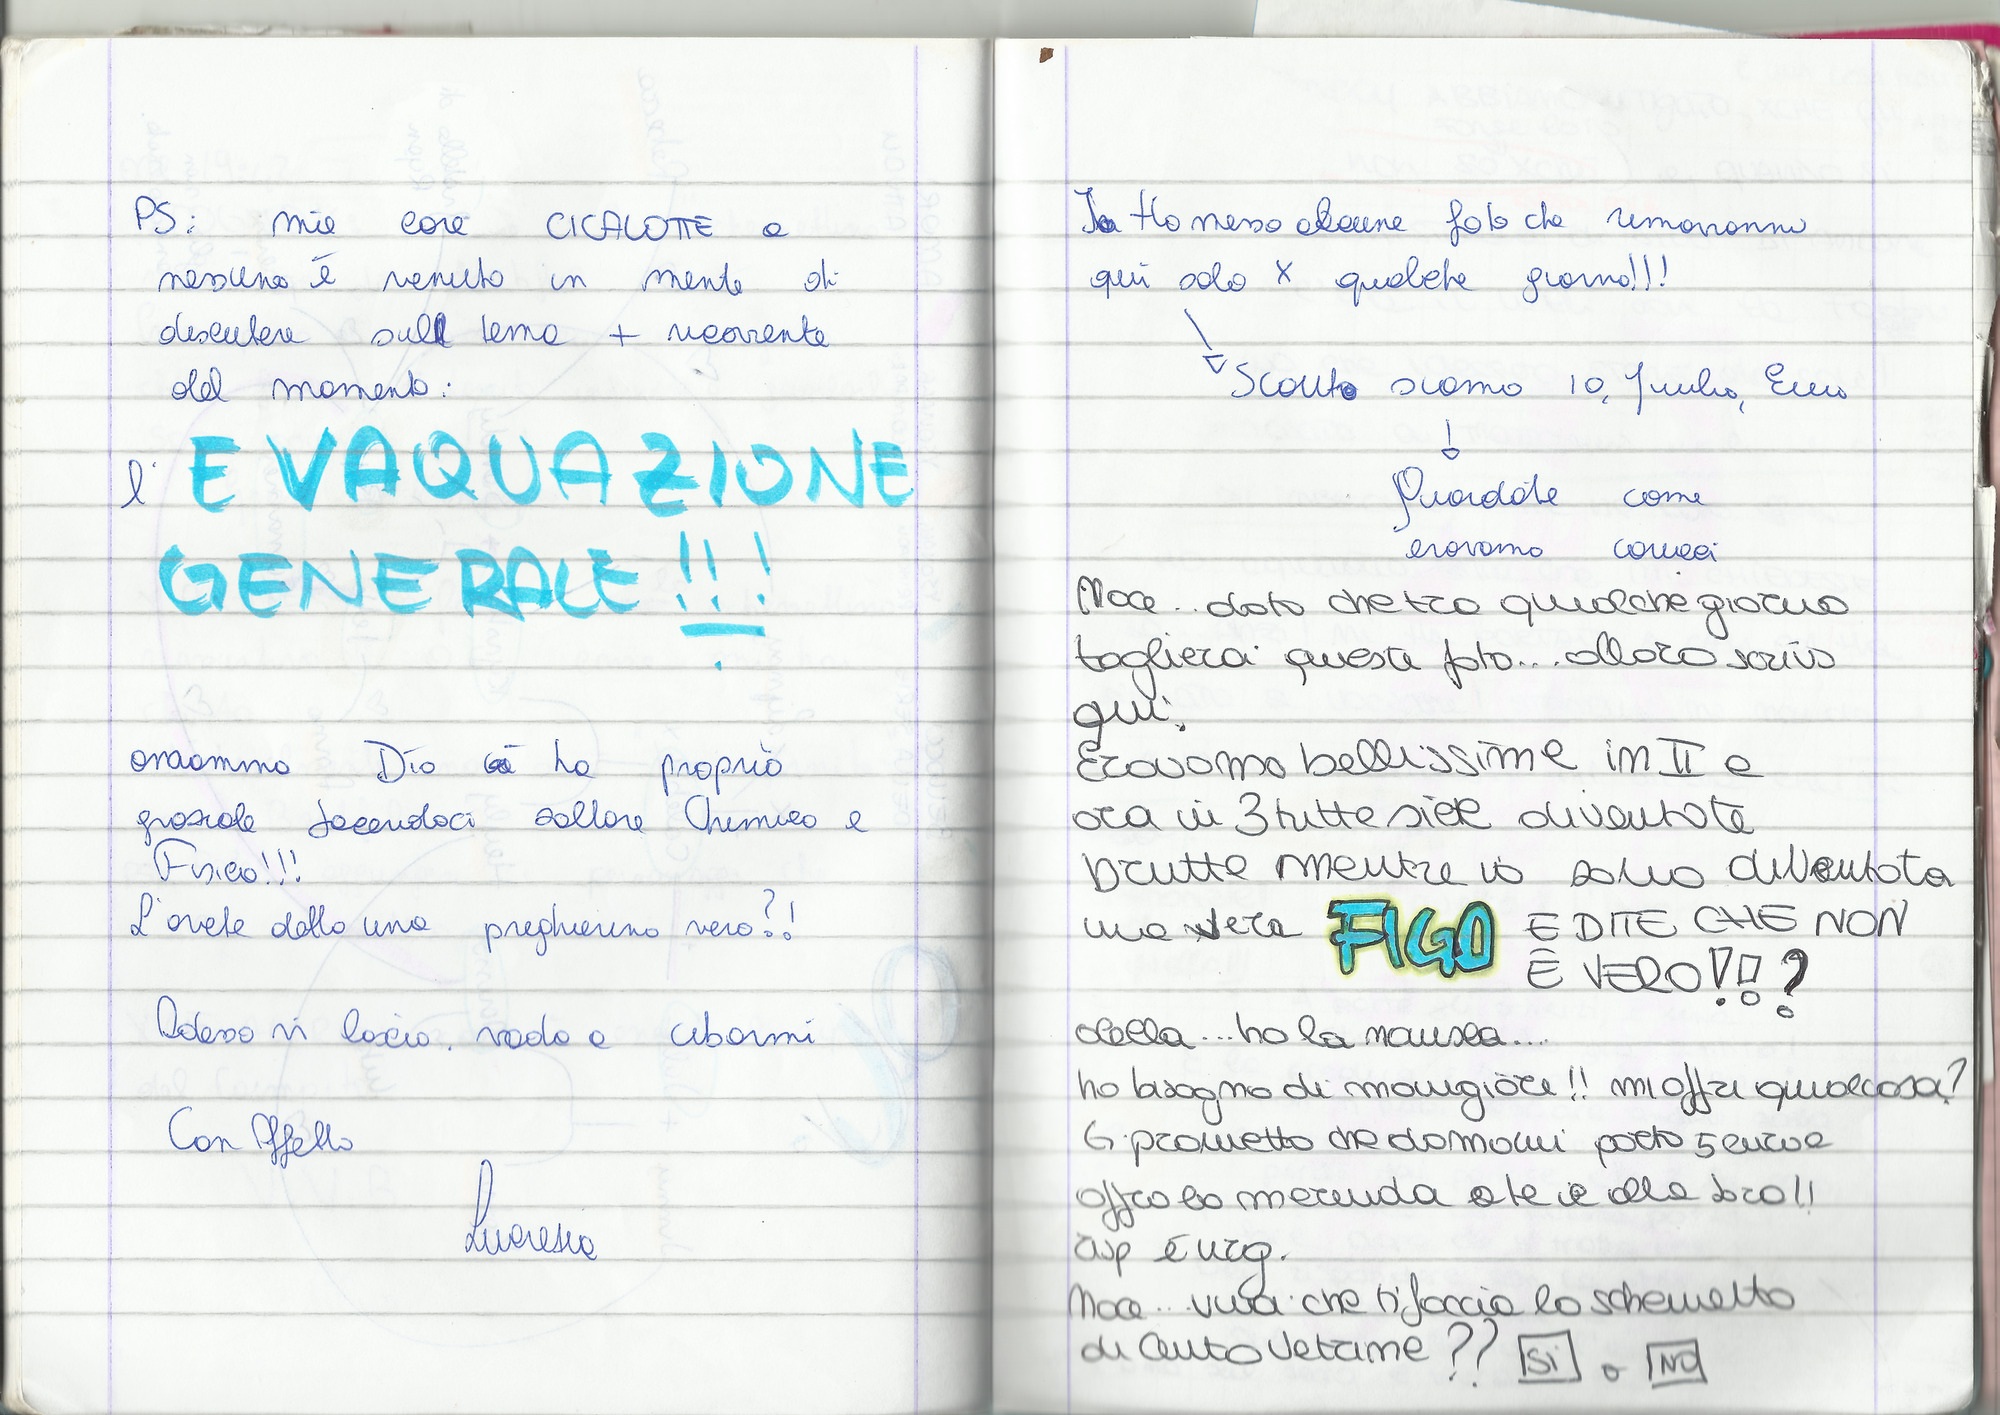 PS: mie care CICALOTTE a
nessuno è venuto in mente di
discutere sul tema + ricorrente
del momento:
l' EVAQUAZIONE
GENERALE!!!
Dio ha proprio
graziate facendoci saltare Chimica e
Fisica!!!
L'avete detta una preghierina vero?!
Adesso vi lascio. vado a cibarmi
Con Affetto
Lucrezia
Ho messo alcune foto che rimarranno
qui solo x qualche giorno!!!
Sconto siamo 10, Giulia,
Guardate come
eravamo
dato che tra qualche giorno
toglierai queste foto... allora scrivo
qui.
Eravamo bellissime in II e
ora in 3 tutte siete diventate
brutte mentre io sono diventata
una vera FIGA E DITE CHE NON
È VERO!!?
della... ho la nausea...
ho bisogno di mangiare!! mi offri qualcosa?
Ti prometto che domani porto 5 euro e
offro la merenda a te e alla Sara!!
risp è urg.
vuoi che ti faccia lo schemetto
di Cauto Vetrame?? SI o NO